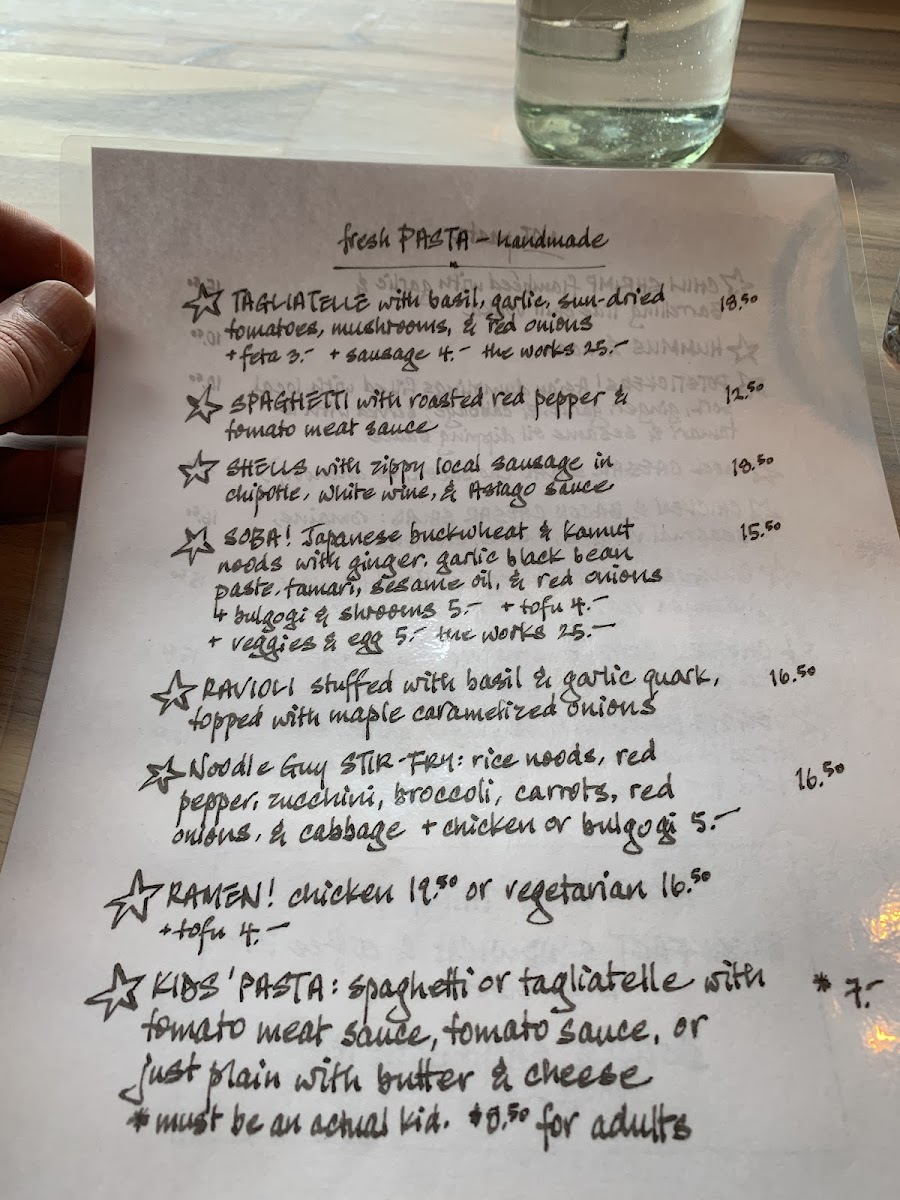 fresh PASTA - handmade
TAGLIATELLE with basil, garlic, sun-dried 18.50
tomatoes, mushrooms, & red onions
+ feta 3.- + sausage 4.- the works 25.-
SPAGHETTI with roasted red pepper & 12.50
tomato meat sauce
SHELLS with zippy local sausage in 18.50
chipotle, white wine, & Asiago sauce
SOBA! Japanese buckwheat & Kamut 15.50
noods with ginger, garlic black bean
paste, tamari, sesame oil, & red onions
+ bulgogi & shrooms 5.- + tofu 4.-
+ veggies & egg 5.- the works 25.-
RAVIOLI stuffed with basil & garlic quark, 16.50
topped with maple caramelized onions
Noodle Guy STIR-FRY: rice noods, red
pepper, zucchini, broccoli, carrots, red 16.50
onions, & cabbage + chicken or bulgogi 5.-
RAMEN! chicken 19.50 or vegetarian 16.50
+ tofu 4.-
KIDS' PASTA: spaghetti or tagliatelle with * 7.-
tomato meat sauce, tomato sauce, or
just plain with butter & cheese
* must be an actual kid. $8.50 for adults